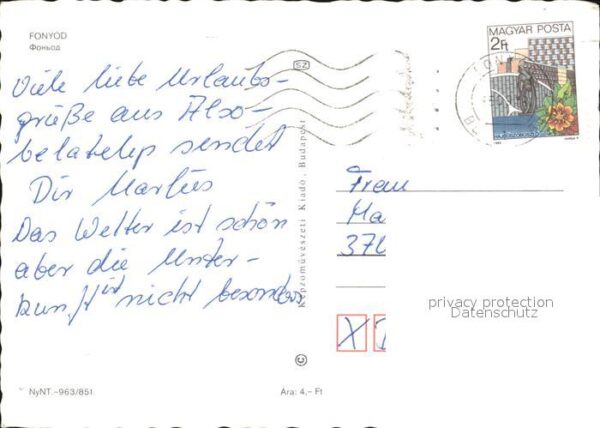 FONYÓD
Фоньод
MAGYAR POSTA
2Ft
SZ
Viele liebe Urlaubs-
grüße aus Alsó-
belatelep sendet
Dir Marlies
Das Wetter ist schön
aber die Unter-
kunft ist nicht besonders
Képzőművészeti Kiadó, Budapest
Frau
Ma
37
privacy protection
Datenschutz
X
NyNT.–963/851.
Ára: 4,– Ft